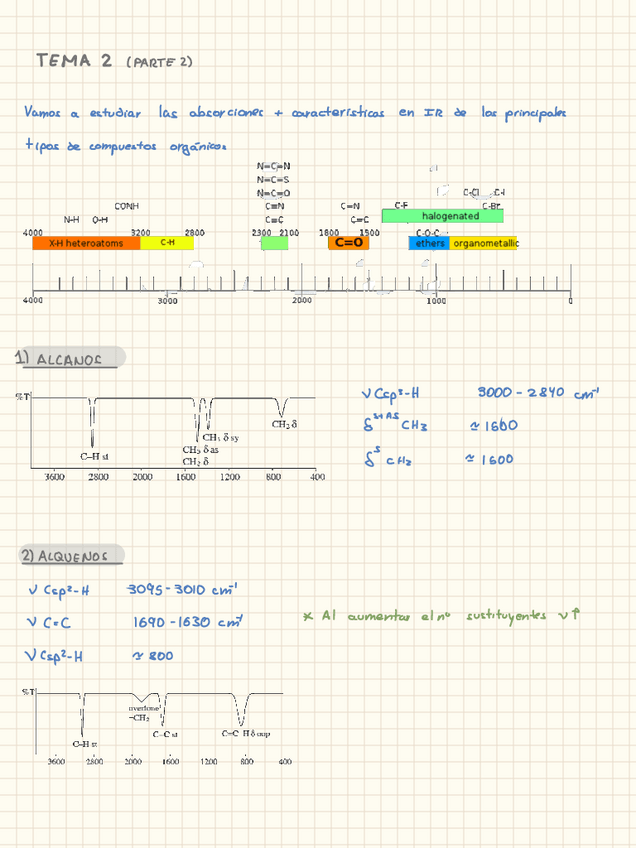 TEMA 2 (PARTE 2)
Vamos a estudiar las absorciones + características en IR de los principales
tipos de compuestos orgánicos
N=C=N
N=C=S
N=C=O
CONH C≡N C=N C-F C-Br
N-H O-H C≡C C=C halogenated
4000 3200 2800 2300 2100 1800 1500 C-O-C
X-H heteroatoms C-H C=O ethers organometallic
4000 3000 2000 1000 0
1) ALCANOS
%T
C-H st
CH3 δ sy
CH3 δ as
CH2 δ
CH2 δ
3600 2800 2000 1600 1200 800 400
ν Csp3-H 3000 - 2840 cm-1
CH3 ≃ 1600
δs CH2 ≃ 1600
2) ALQUENOS
ν Csp2-H 3095-3010 cm-1
ν C=C 1690 - 1630 cm-1
ν Csp2-H ≃ 800
* Al aumentar el nº sustituyentes ν↑
%T
C-H st
overtone
=CH2
C=C st
C=C-H δ oop
3600 2800 2000 1600 1200 800 400